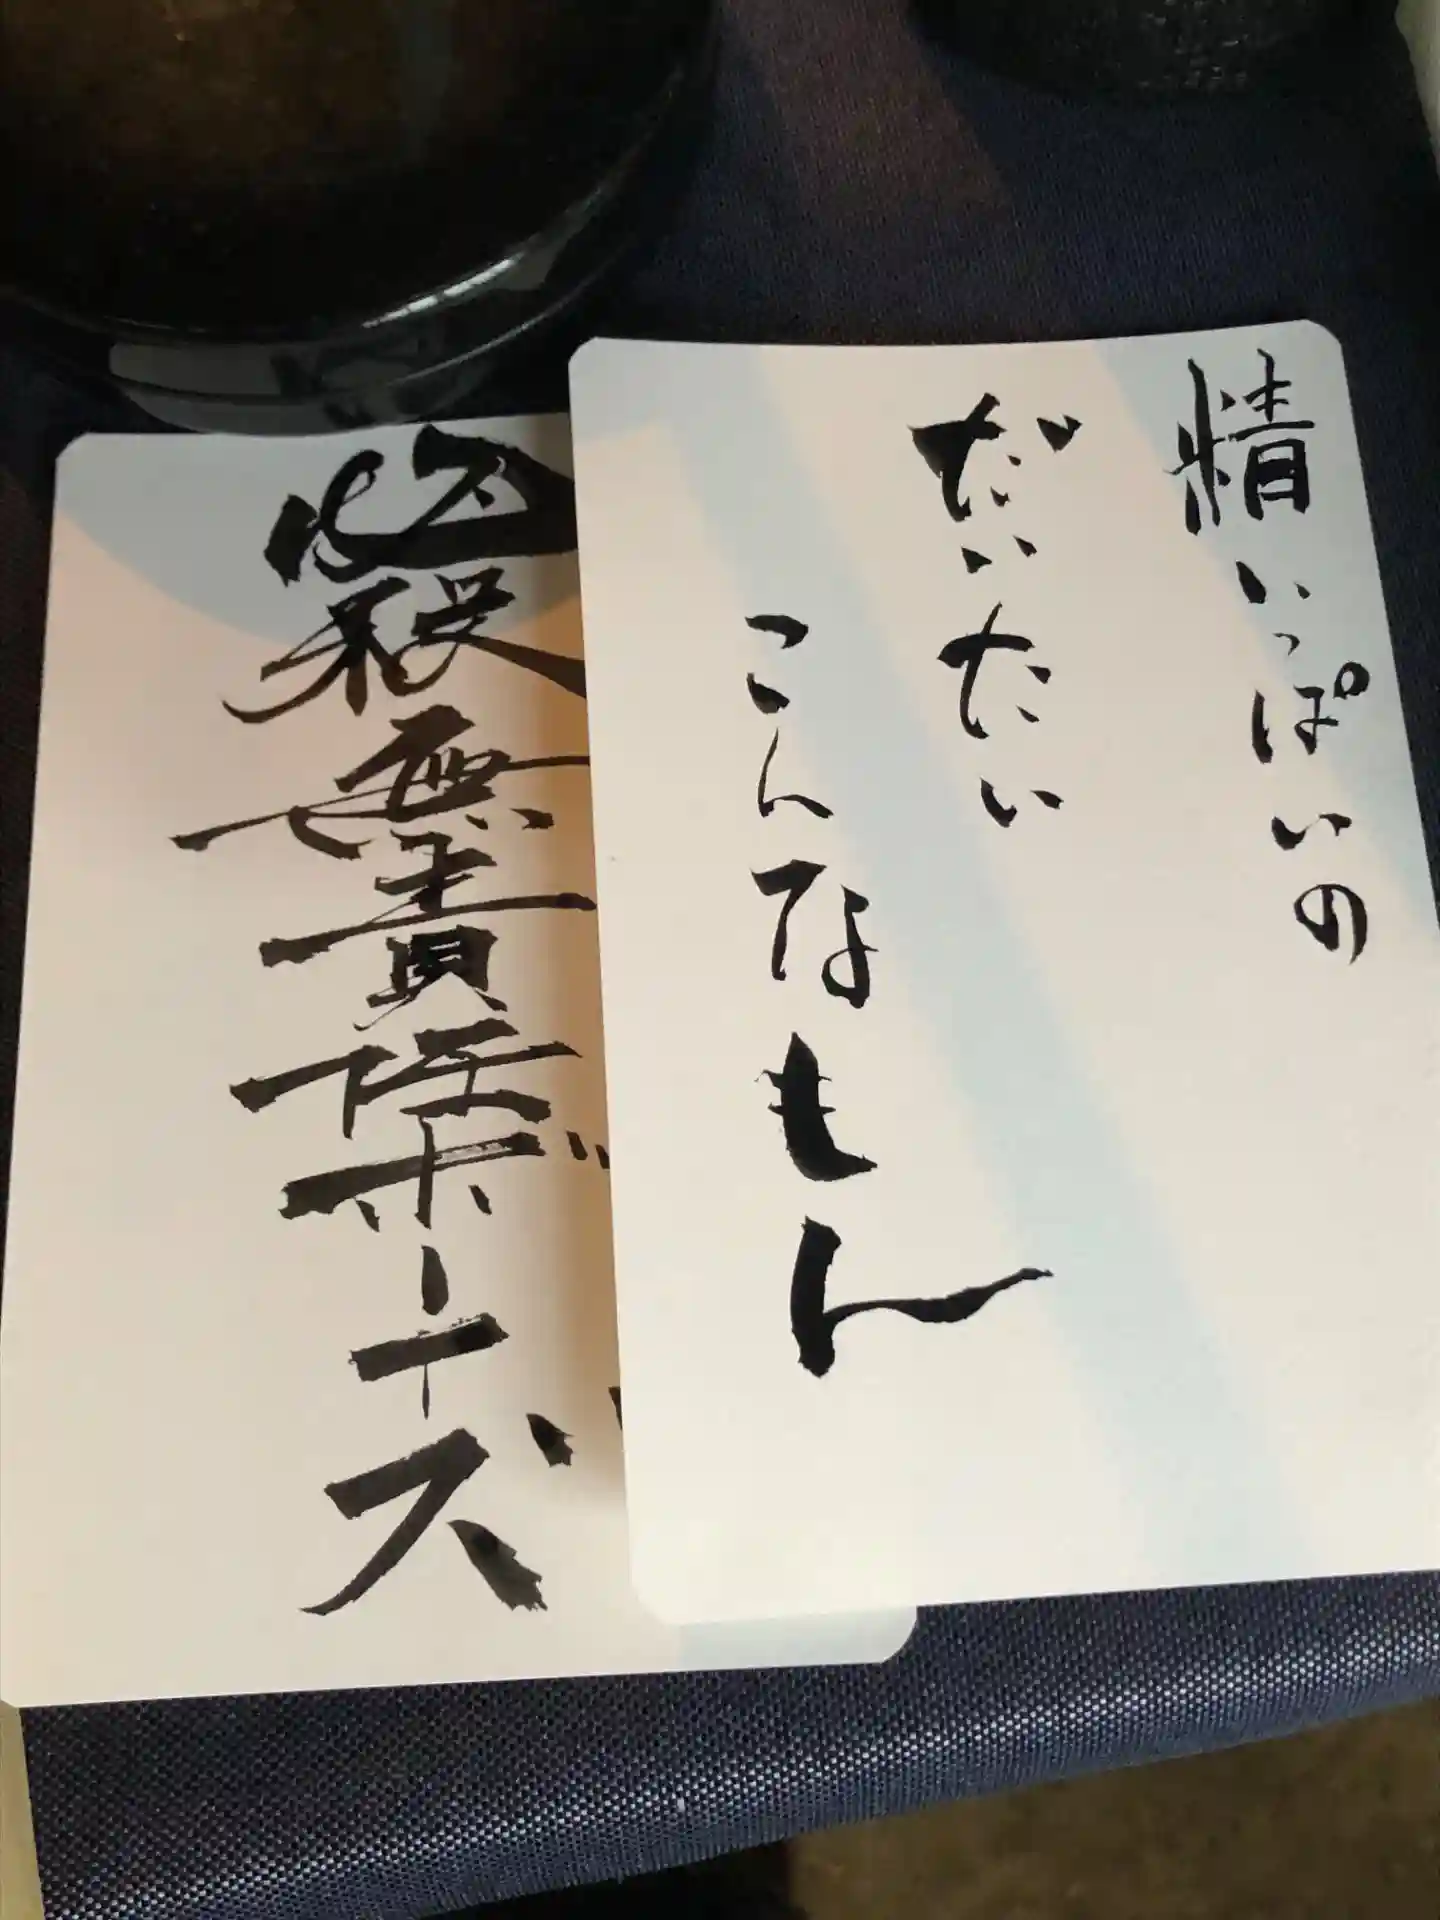 精いっぱいの
だいたい
こんなもん
必殺無責任ボーイズ